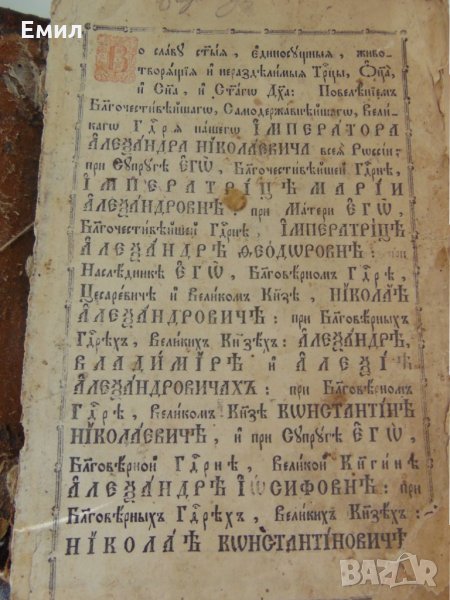 Емил
Во славу ст҃ыѧ, єдиносꙋщныѧ, живо-
творѧщіѧ и нераздѣлимыѧ Трⷪ҇цы, Ѻ҆ц҃а,
и Сн҃а, и Ст҃агѡ Дх҃а: Повелѣніемъ
Бл҃гочестивѣйшагѡ, Самодержавнѣйшагѡ, Вели-
кагѡ Гдⷭ҇рѧ нашегѡ ІМПЕРАТОРА
АЛЕѮАНДРА НІКОЛАЕВИЧА всеѧ Рѡссіи:
при Сꙋпрꙋгѣ ЄГѠ̀, Бл҃гочестивѣйшей Гдⷭ҇рнѣ,
ІМПЕРАТРІЦѢ МАРІИ
АЛЕѮАНДРОВНѢ: при Матери ЄГѠ̀,
Бл҃гочестивѣйшей Гдⷭ҇рнѣ, ІМПЕРАТРІЦѢ
АЛЕѮАНДРѢ ѲЕОДѠРОВНѢ: при
Наслѣдникѣ ЄГѠ̀, Бл҃говѣрномъ Гдⷭ҇рѣ,
Цесаревичѣ и Великомъ Кн҃зѣ, НІКОЛАѢ
АЛЕѮАНДРОВИЧѢ: при Бл҃говѣрныхъ
Гдⷭ҇рѣхъ, Великихъ Кн҃зѣхъ: АЛЕѮАНДРѢ,
ВЛАДИМІРѢ И АЛЕѮІѢ
АЛЕѮАНДРОВИЧАХЪ: при Бл҃говѣрномъ
Гдⷭ҇рѣ, Великомъ Кн҃зѣ КѠНСТАНТІНѢ
НІКОЛАЕВИЧѢ, и при Сꙋпрꙋгѣ ЄГѠ̀,
Бл҃говѣрной Гдⷭ҇рнѣ, Великой Кн҃гинѣ
АЛЕѮАНДРѢ ІѠСИФОВНѢ: при
Бл҃говѣрныхъ Гдⷭ҇рѣхъ, Великихъ Кн҃зѣхъ:
НІКОЛАѢ КѠНСТАНТІНОВИЧѢ
BAZAR.BG